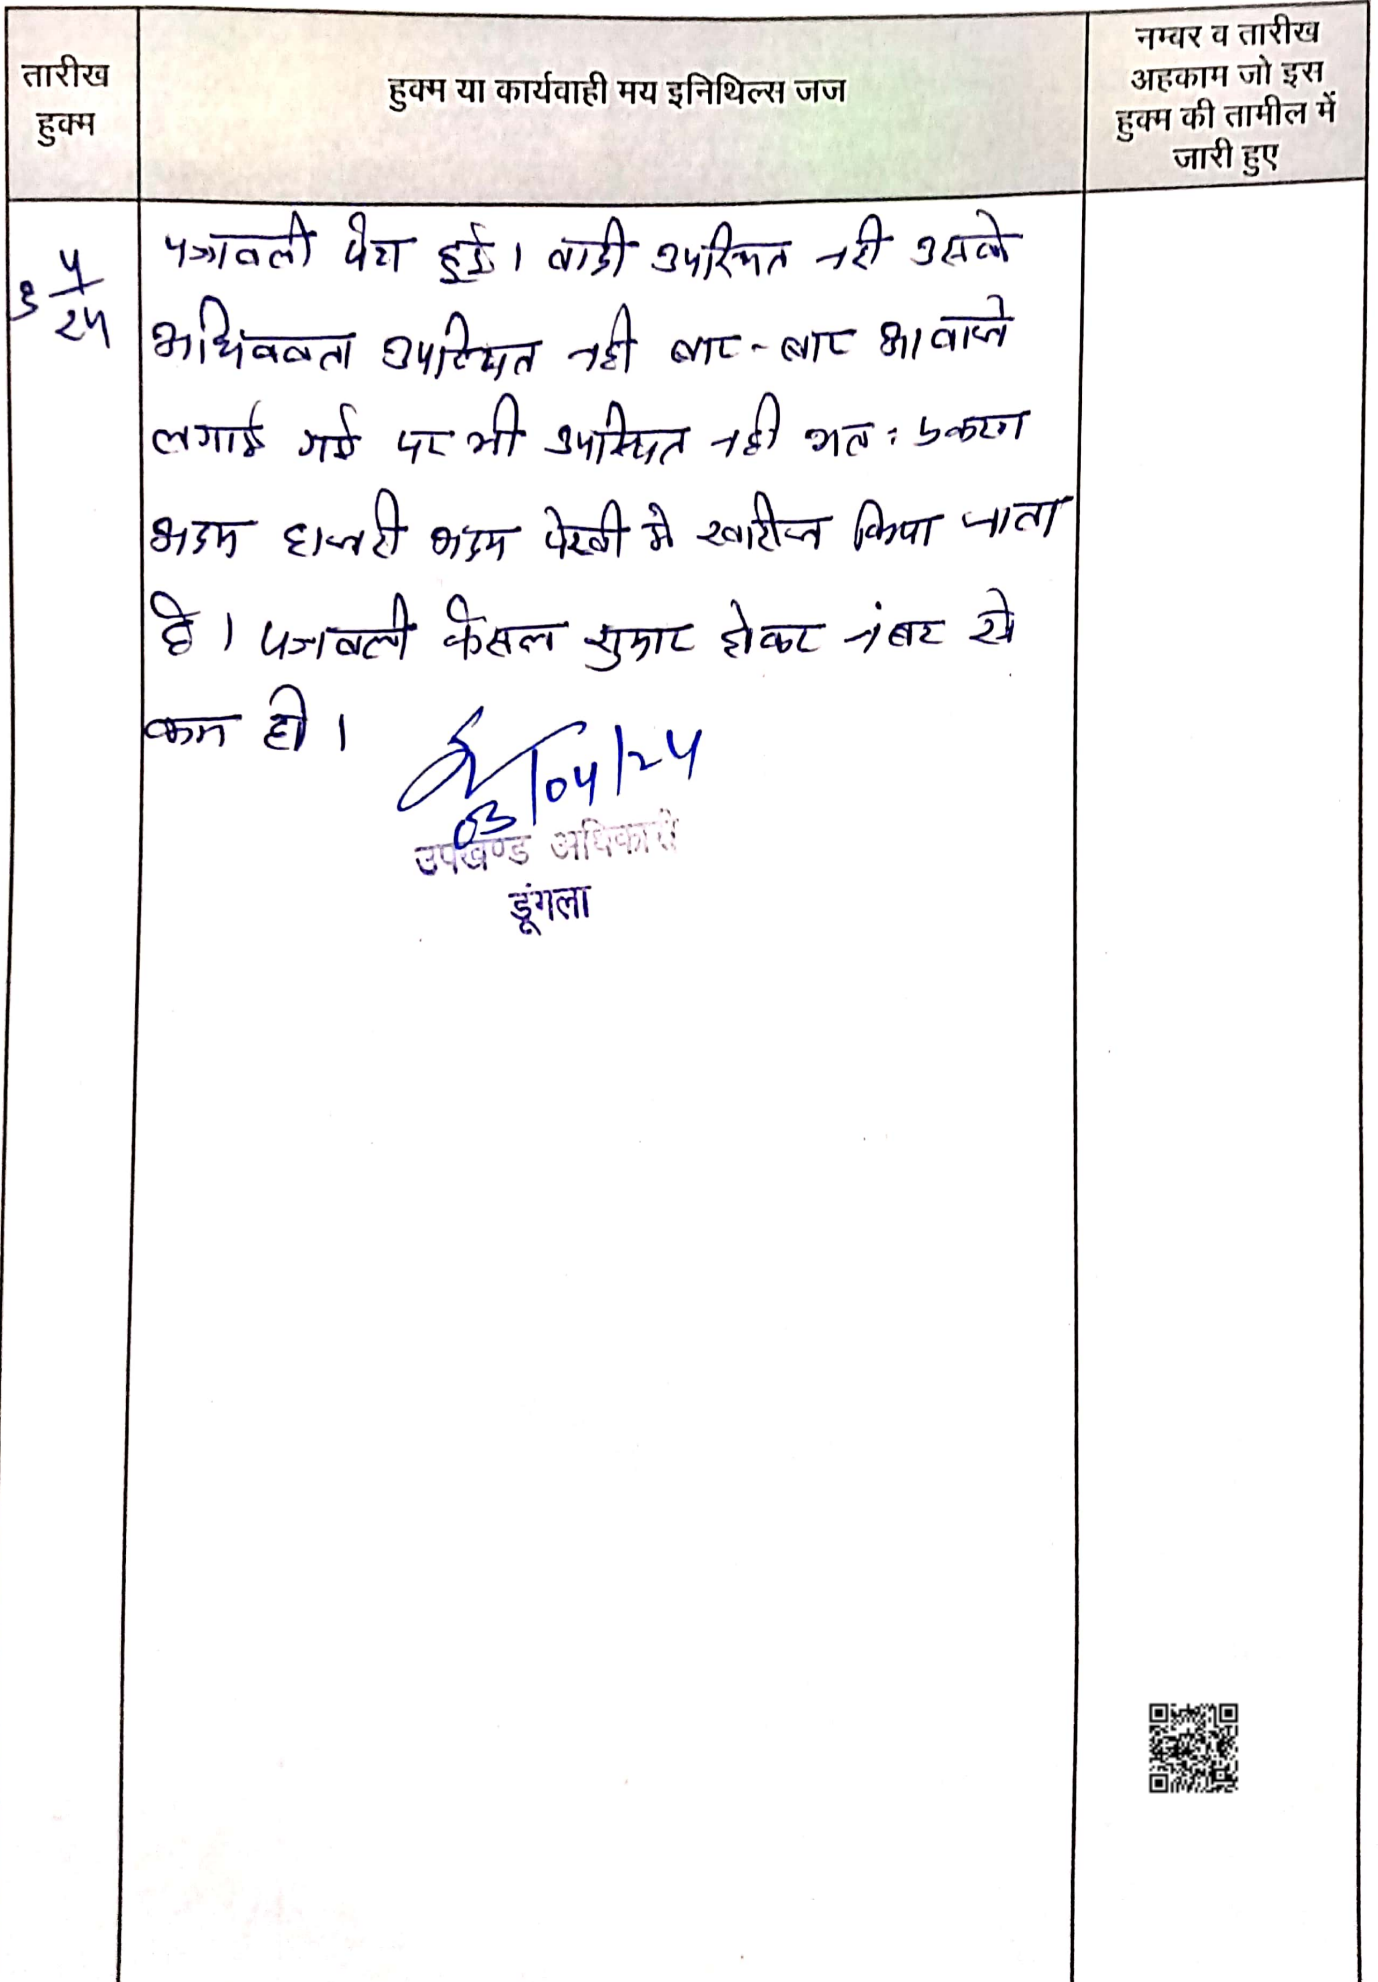 तारीख
हुक्म
हुक्म या कार्यवाही मय इनिथिल्स जज
नम्वर व तारीख
अहकाम जो इस
हुक्म की तामील में
जारी हुए
3 4/24
पत्रावली पेश हुई। वादी उपस्थित नही उसके
अधिवक्ता उपस्थित नही बार-बार आवाजे
लगाई गई पर भी उपस्थित नही अत: प्रकरण
अदम हाजरी अदम पेरवी मे खारीज किया जाता
है। पत्रावली फेसल शुमार होकर नंबर से
कम हो।
03/04/24
उपखण्ड अधिकारी
डूंगला